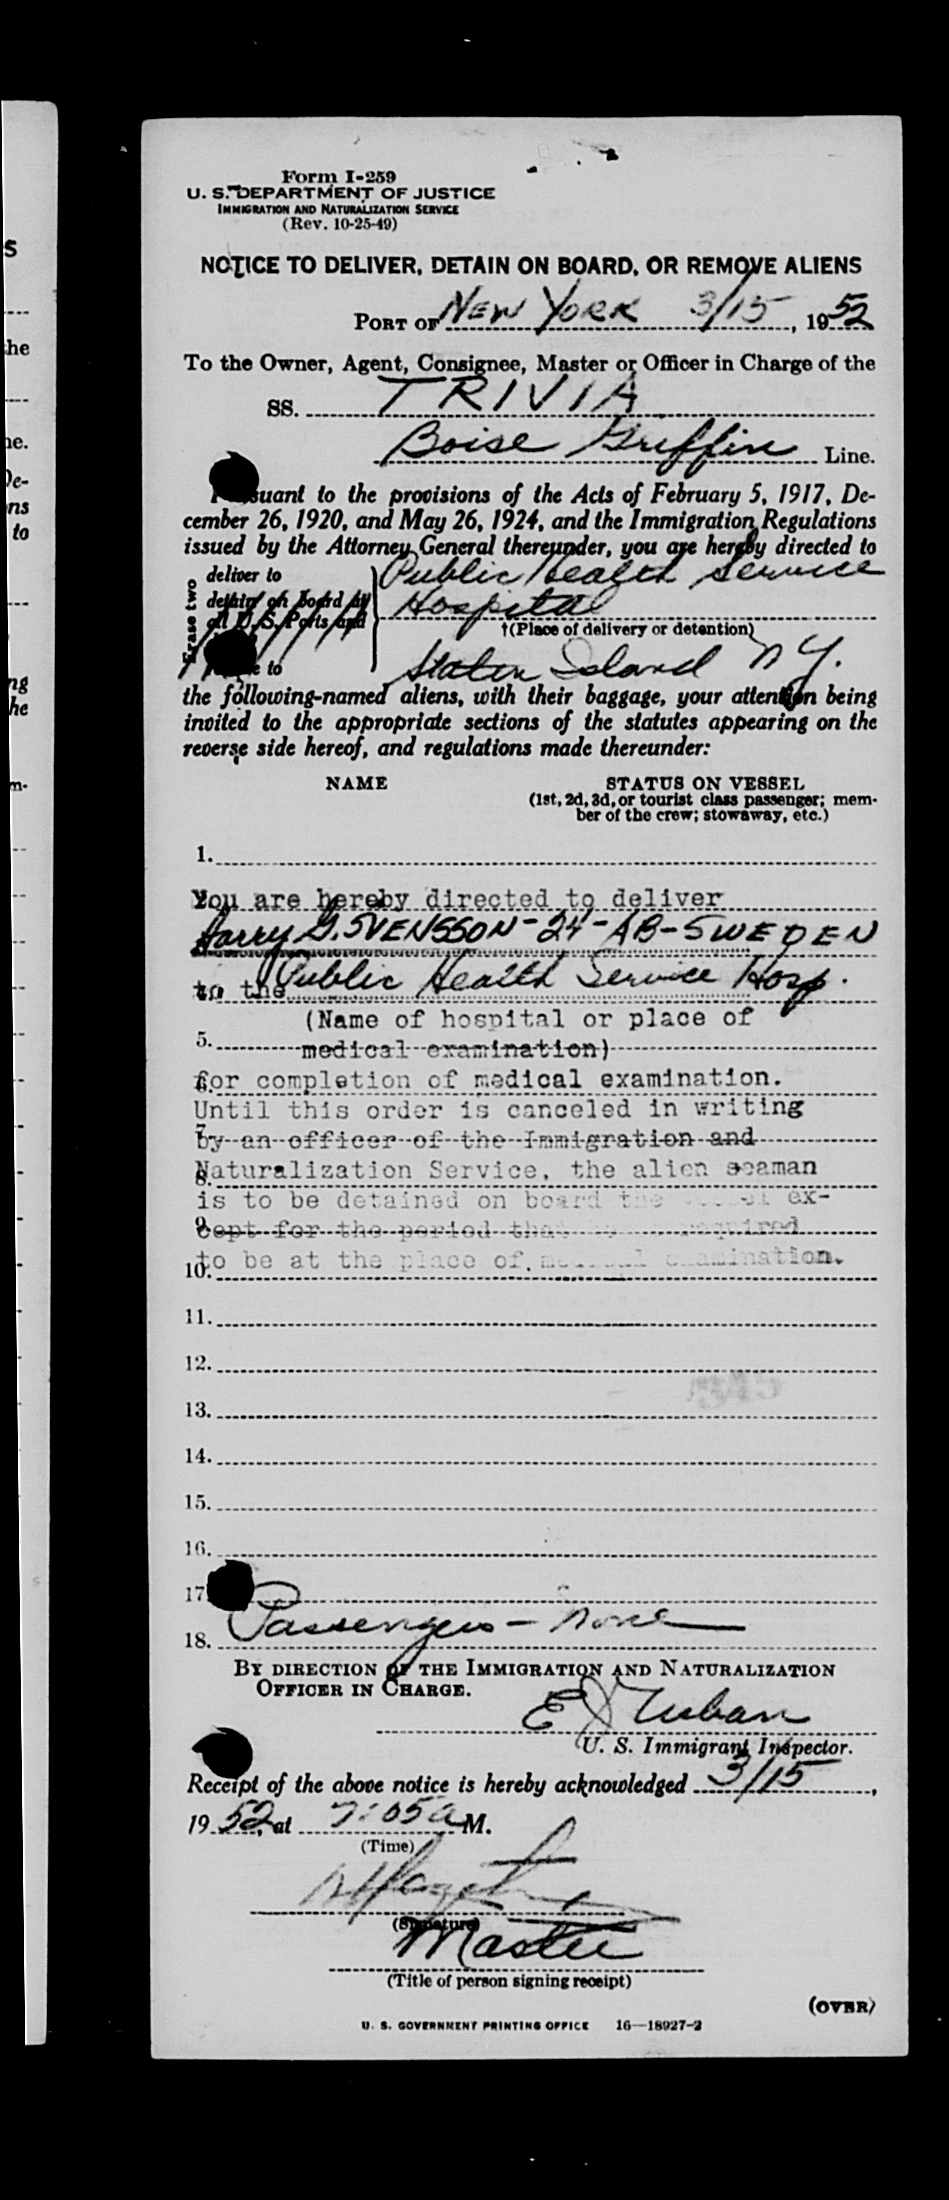 Form I-259
U. S. DEPARTMENT OF JUSTICE
IMMIGRATION AND NATURALIZATION SERVICE
(Rev. 10-25-49)
NOTICE TO DELIVER, DETAIN ON BOARD, OR REMOVE ALIENS
PORT OF NEW YORK 3/15, 1952
To the Owner, Agent, Consignee, Master or Officer in Charge of the
SS. TRIVIA
Boise Griffin Line.
Pursuant to the provisions of the Acts of February 5, 1917, De-
cember 26, 1920, and May 26, 1924, and the Immigration Regulations
issued by the Attorney General thereunder, you are hereby directed to
Erase two
deliver to
detain on board at
all U.S. Ports and
to
Public Health Service
Hospital
†(Place of delivery or detention)
Staten Island N Y.
the following-named aliens, with their baggage, your attention being
invited to the appropriate sections of the statutes appearing on the
reverse side hereof, and regulations made thereunder:
NAME STATUS ON VESSEL
(1st, 2d, 3d, or tourist class passenger; mem-
ber of the crew; stowaway, etc.)
1.
You are hereby directed to deliver
Harry G. SVENSSON - 24 - AB - SWEDEN
to the Public Health Service Hosp.
(Name of hospital or place of
5. medical examination)
for completion of medical examination.
Until this order is canceled in writing
7. by an officer of the Immigration and
8. Naturalization Service, the alien seaman
is to be detained on board the ex-
9. cept for the period that required
10. to be at the place of medical examination.
11.
12.
13.
14.
15.
16.
17.
18. Passengers - None
BY DIRECTION OF THE IMMIGRATION AND NATURALIZATION
OFFICER IN CHARGE.
U. S. Immigrant Inspector.
Receipt of the above notice is hereby acknowledged 3/15,
1952, at 7:05 a M.
(Time)
(Signature)
Master
(Title of person signing receipt)
(OVER)
U. S. GOVERNMENT PRINTING OFFICE 16—18927-2
s
he
ne.
De-
ns
to
ng
he
m-